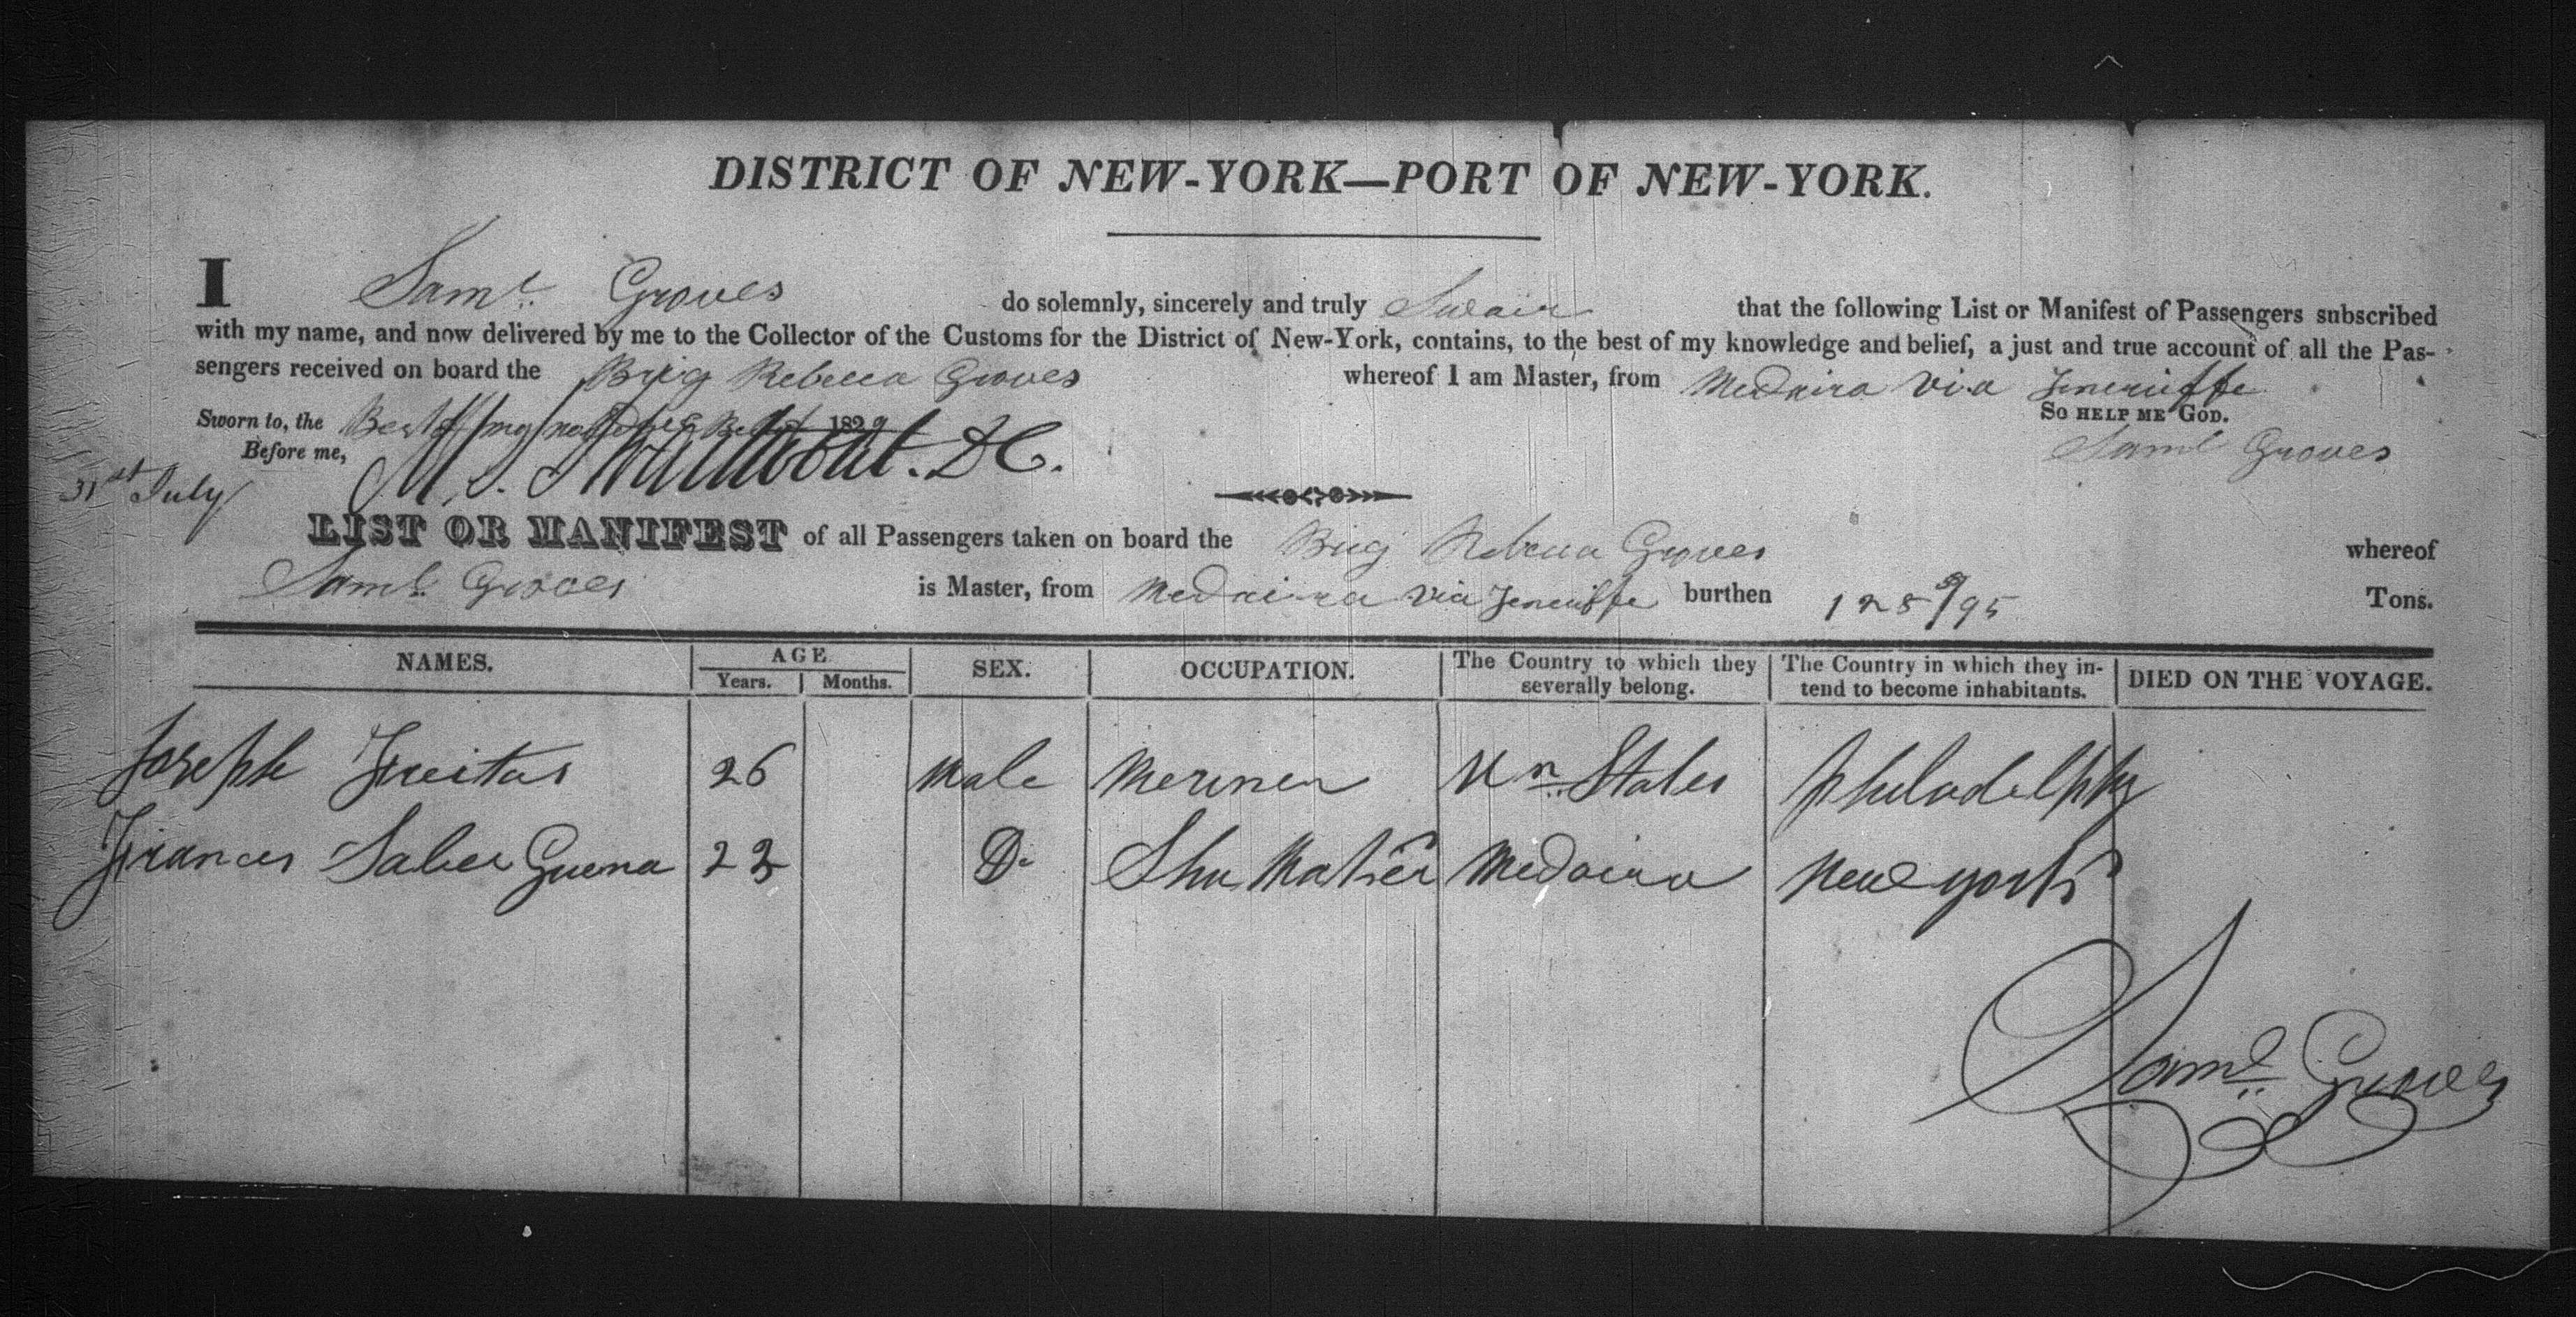 DISTRICT OF NEW-YORK—PORT OF NEW-YORK.
I Saml. Groves do solemnly, sincerely and truly Swair that the following List or Manifest of Passengers subscribed
with my name, and now delivered by me to the Collector of the Customs for the District of New-York, contains, to the best of my knowledge and belief, a just and true account of all the Pas-
sengers received on board the Brig Rebecca Groves whereof I am Master, from Medaira via Teneriffe
So HELP ME GOD.
Sworn to, the Best of my 1829
Before me, D C.
Saml Groves
31st July
LIST OR MANIFEST of all Passengers taken on board the Brig Rebecca Groves whereof
Saml. Groves is Master, from Medaira via Teneriffe burthen 128 /95 Tons.
NAMES. AGE SEX. OCCUPATION. The Country to which they severally belong. The Country in which they in- tend to become inhabitants. DIED ON THE VOYAGE.
Years. Months.
Joseph Freitas 26 Male Meriner Un. States Philadelphy
Frances Saber Guena 23 Do Shu Maker Medaira New york
Saml. Groves